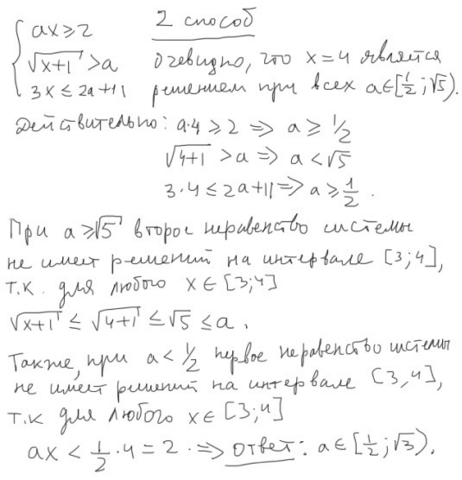 2 способ
{ ax ≥ 2
√(x+1) > a
3x ≤ 2a+11
Очевидно, что x=4 является
решением при всех a∈[1/2; √5).
Действительно: a·4 ≥ 2 ⇒ a ≥ 1/2
√(4+1) > a ⇒ a < √5
3·4 ≤ 2a+11 ⇒ a ≥ 1/2.
При a ≥ √5 второе неравенство системы
не имеет решений на интервале [3;4],
т.к. для любого x∈[3;4]
√(x+1) ≤ √(4+1) ≤ √5 ≤ a.
Также, при a < 1/2 первое неравенство системы
не имеет решений на интервале [3,4],
т.к для любого x∈[3;4]
ax < 1/2·4 = 2. ⇒ Ответ: a∈[1/2; √3).